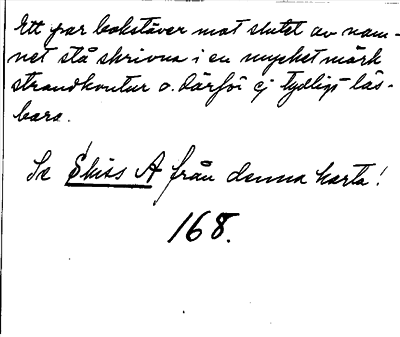 Ett par bokstäver mot slutet av nam-
net stå skrivna i en mycket mörk
strandkontur o. därför ej tydligt läs-
bara.
Se Skiss A från denna karta!
168.